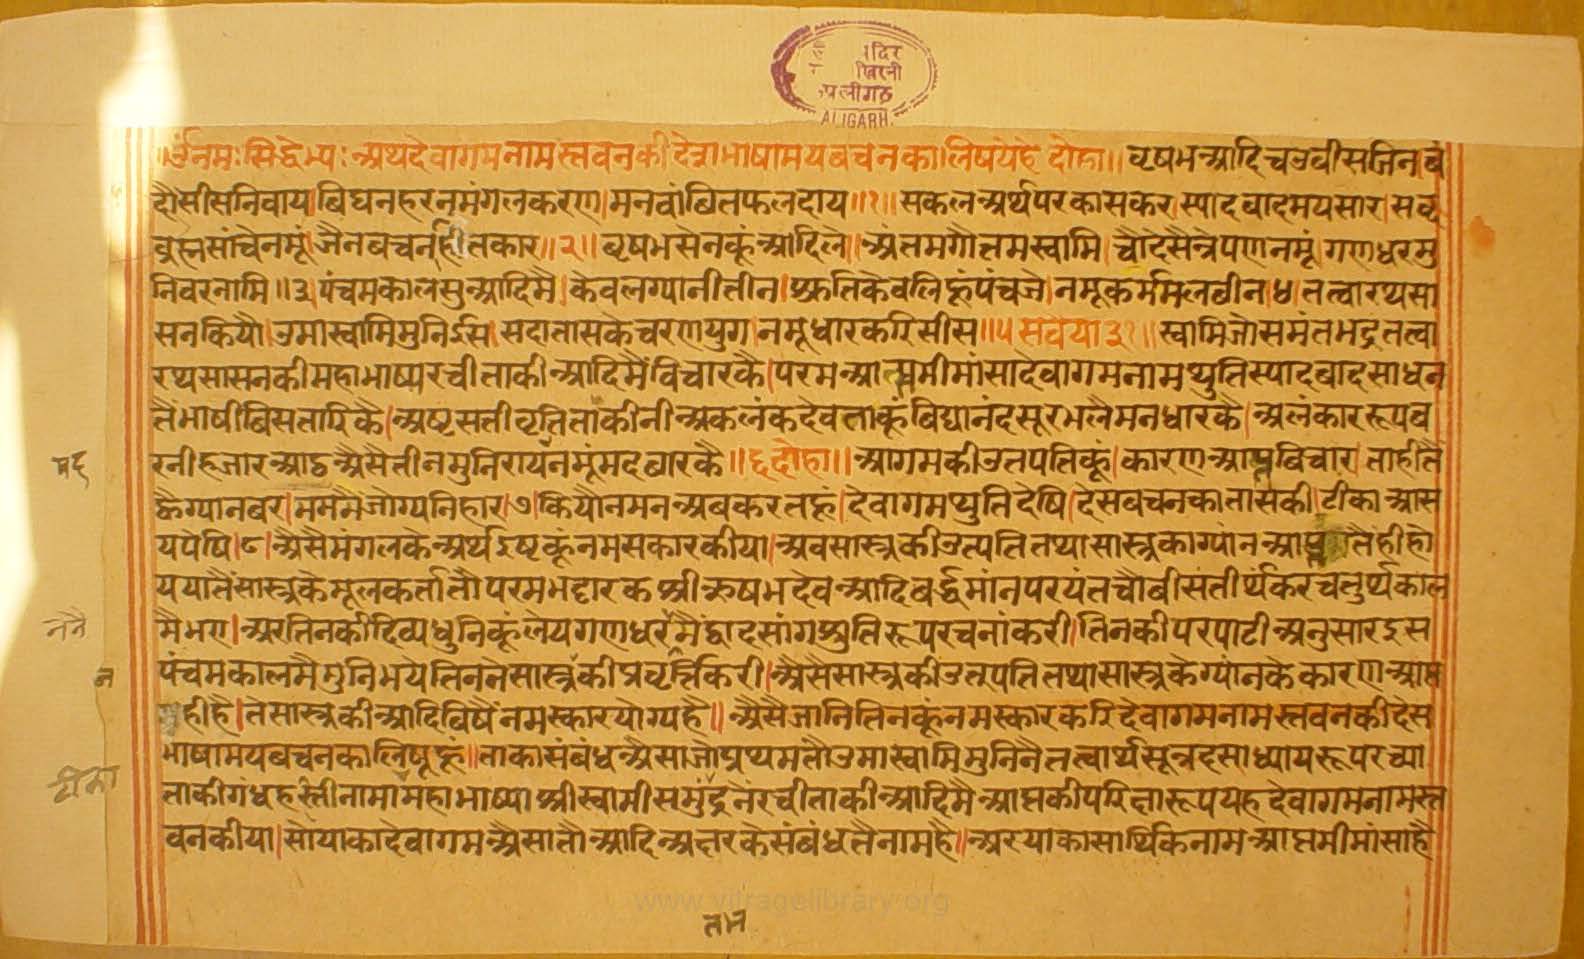 दिर
खिरनी
अलीगढ
ALIGARH.
॥ॐनमःसिद्धेभ्यः॥अथदेवागमनामस्तवनकीदेशभाषामयबचनकालिषयेहै दोहा॥ वृषभआदिचउवीसजिन।बं
दौसीसनिवाय।बिघनहरनमंगलकरण।मनवांछितफलदाय॥१॥सकलअर्थपरकासकर।स्यादवादमयसार।सवृ
ब्रह्मसांचैनमूं।जैनबचनहीतकार॥२॥वृषभसैनकूंआदिले।अंतमगौतमस्वामि।चौदेसैत्रेपणनमूं।गणधरमु
निवरनामि॥३॥पंचमकालसुआदिमै।केवलग्यानीतीन।श्रुतिकेवलिहूंपंचजे।नमूकर्ममलषीन।४।तत्वारथसा
सनकियौ।उमास्वामिमुनिईस।सदातासकेचरणयुग।नमूधारकरिसीस॥५सवैया३१॥स्वामिजोसमंतभद्रतत्वा
रथसासनकीमहाभाष्यरचीताकीआदिमैंविचारकै।परमआप्तमीमांसादेवागमनामथ्युतिस्यादवादसाधन
तैंभाषीबिसतारिकै।अष्टसतीवृतिताकीनीअकलंकदेवताकूंविद्यानंदसूरभलैमनधारकै।अलंकाररूपव
रनीहजारआठअैसैतीनमुनिरायनमूंमदबारकै॥६दोहा॥आगमकीउतपतिकूं।कारणआप्तबिचार।ताहीतै
ह्वैग्यानबर।मममैजोग्यनिहार।७।कियौनमनअबकरतहूं।देवागमथ्युतिदेषि।देसबचनकातासकी।टीकाआस
यपेषि।८।अैसैमंगलकेअर्थइष्टकूंनमसकारकीया।अवसास्त्रकीउत्पतितथासास्त्रकाग्यांनआप्ततैंहीहो
ययातैंसास्त्रकेमूलकर्त्तातौपरमभट्टारकश्रीऋषभदेवआदिबर्द्धमांनपरयंतचौबीसतीर्थंकरचतुर्थकाल
मैभए।अरतिनकीदिव्यधुनिकूंलेयगणधरमैंद्वादसांगश्रुतिरूपरचनांकरी।तिनकीपरपाटीअनुसारइस
पंचमकालमैमुनिभयेतिननैसास्त्रकीप्रवृत्तिकरी।अैसैसास्त्रकीउतपतितथासास्त्रकेग्यांनकेकारणआप्त
हीहै।तैसास्त्रकीआदिविषैंनमस्कारयोग्यहै॥अैसैजानितिनकूंनमस्कारकरिदेवागमनामस्तवनकीदेस
भाषामयबचनकालिषूहूं॥ताकासंबंधअैसाजोप्रथमतौउमास्वामिमुनिनैतत्वार्थसूत्रदसाध्यायरूपरच्या
ताकीगंधहस्तीनामांमहाभाष्याश्रीस्वामीसमंतभद्रनैंरचीताकीआदिमैआप्तकीपरिक्षारूपयहदेवागमनामस्त
वनकीया।सोयाकादेवागमअैसातौआदिअक्षरकेसंबंधतैनामहै॥अरयाकासार्थिकनामआप्तमीमांसाहै
नैने
न
टीका
www.vitragelibrary.org